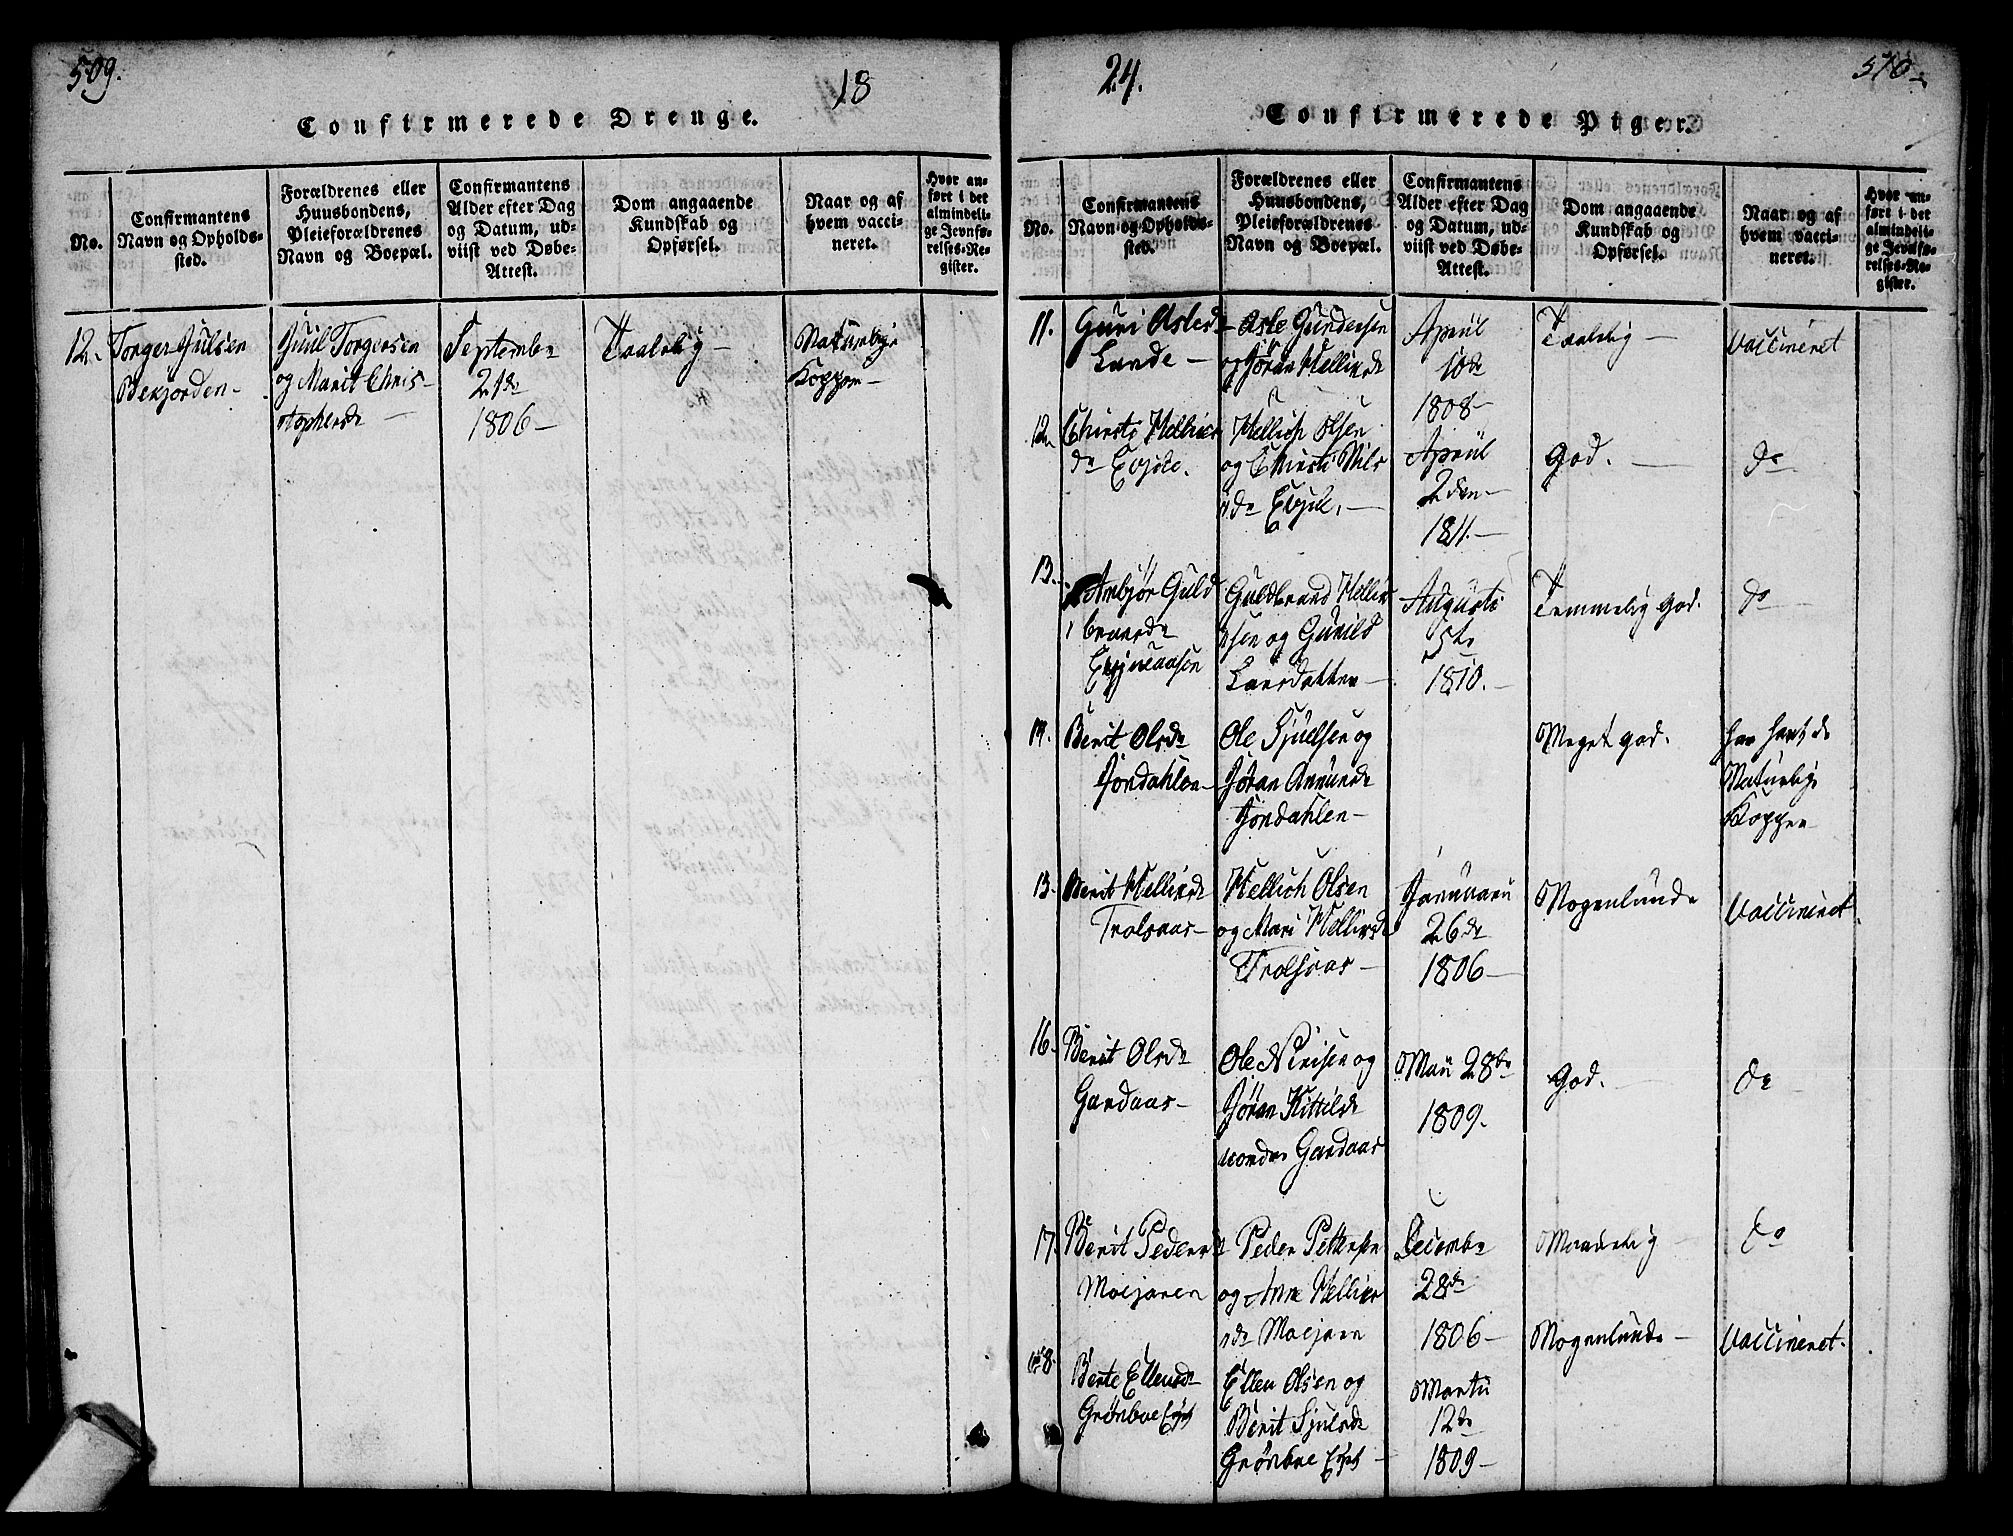 509.
18
Confirmerede Drenge.
No.
Confirmantens
Navn og Opholds-
sted.
Forældrenes eller
Huusbondens,
Pleieforældrenes
Navn og Boepæl.
Confirmantens
Alder efter Dag
og Datum, ud-
viist ved Døbe-
Attest.
Dom angaaende
Kundskab og
Opførsel.
Naar og af
hvem vacci-
neret.
Hvor an-
ført i det
almindeli-
ge Jevnfø-
relses-Re-
gister.
12.
Torger Julsen
Bekjorden-
Juul Torgersen
og Marit Chris-
stophersd
Septembr
21de
1806-
Taalelig-
Naturlige
Koppr-
24.
510-
Confirmerede Piger.
No.
Confirmantens
Navn og Opholds-
sted.
Forældrenes eller
Huusbondens,
Pleieforældrenes
Navn og Boepæl.
Confirmantens
Alder efter Dag
og Datum, ud-
viist ved Døbe-
Attest.
Dom angaaende
Kundskab og
Opførsel.
Naar og af
hvem vacci-
neret.
Hvor an-
ført i det
almindeli-
ge Jevnfø-
relses-Re-
gister.
11.
Guri Aslesd
Lande-
Asle Gundersen
og Jøran Hellicsd
April
10de
1808-
Taalelig-
vaccineret
12
Christi Hellics
dr Evjele.
Hellich Olsen
og Christi Nils
dr Evjele.-
April
2den-
1811.-
God.
do
13.
Ambjør Guld
brandsdr
Guldbrand Hellic
sen og Gunild
Larsdatter-
Augusti
5te
1810.-
Temmelig god.
do
14.
Berit Olsdr
Jordahlen-
Ole Sjulsen og
Jøran Amundsdr
Jordahlen-
Meget god.
har havt de
Naturlige
Kopper
15.
Berit Hellicsdr
Trolsaas-
Hellich Olsen
og Mari Hellicsdr
Trolsaas-
Januarii
26de
1806-
Nogenlunde
vaccineret.
16.
Berit Olsdr
Gardaas-
Ole Nirisen og
Jøran Kittilsdr
Gardaas
Maii 28de
1809.
God.
do
17.
Berit Pedersdr
Moejaren
Peder Pettersen
og Anne Hellics
dr Moejarn
Decembr
28de
1806-
Maadelig
do
18.
Berte Ellensdr
Grønboe
Ellen Olsen og
Berit Sjulsdr
Grønboe
Martii
12de
1809-
Nogenlunde-
vaccineret.